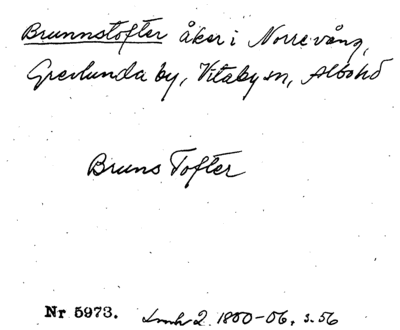 Brunnstofter åker i Norrevång,
Grevlunda by, Vitaby sn, Albo hd
Bruns Tofter
Nr 5973. 2 1800-06, s. 56